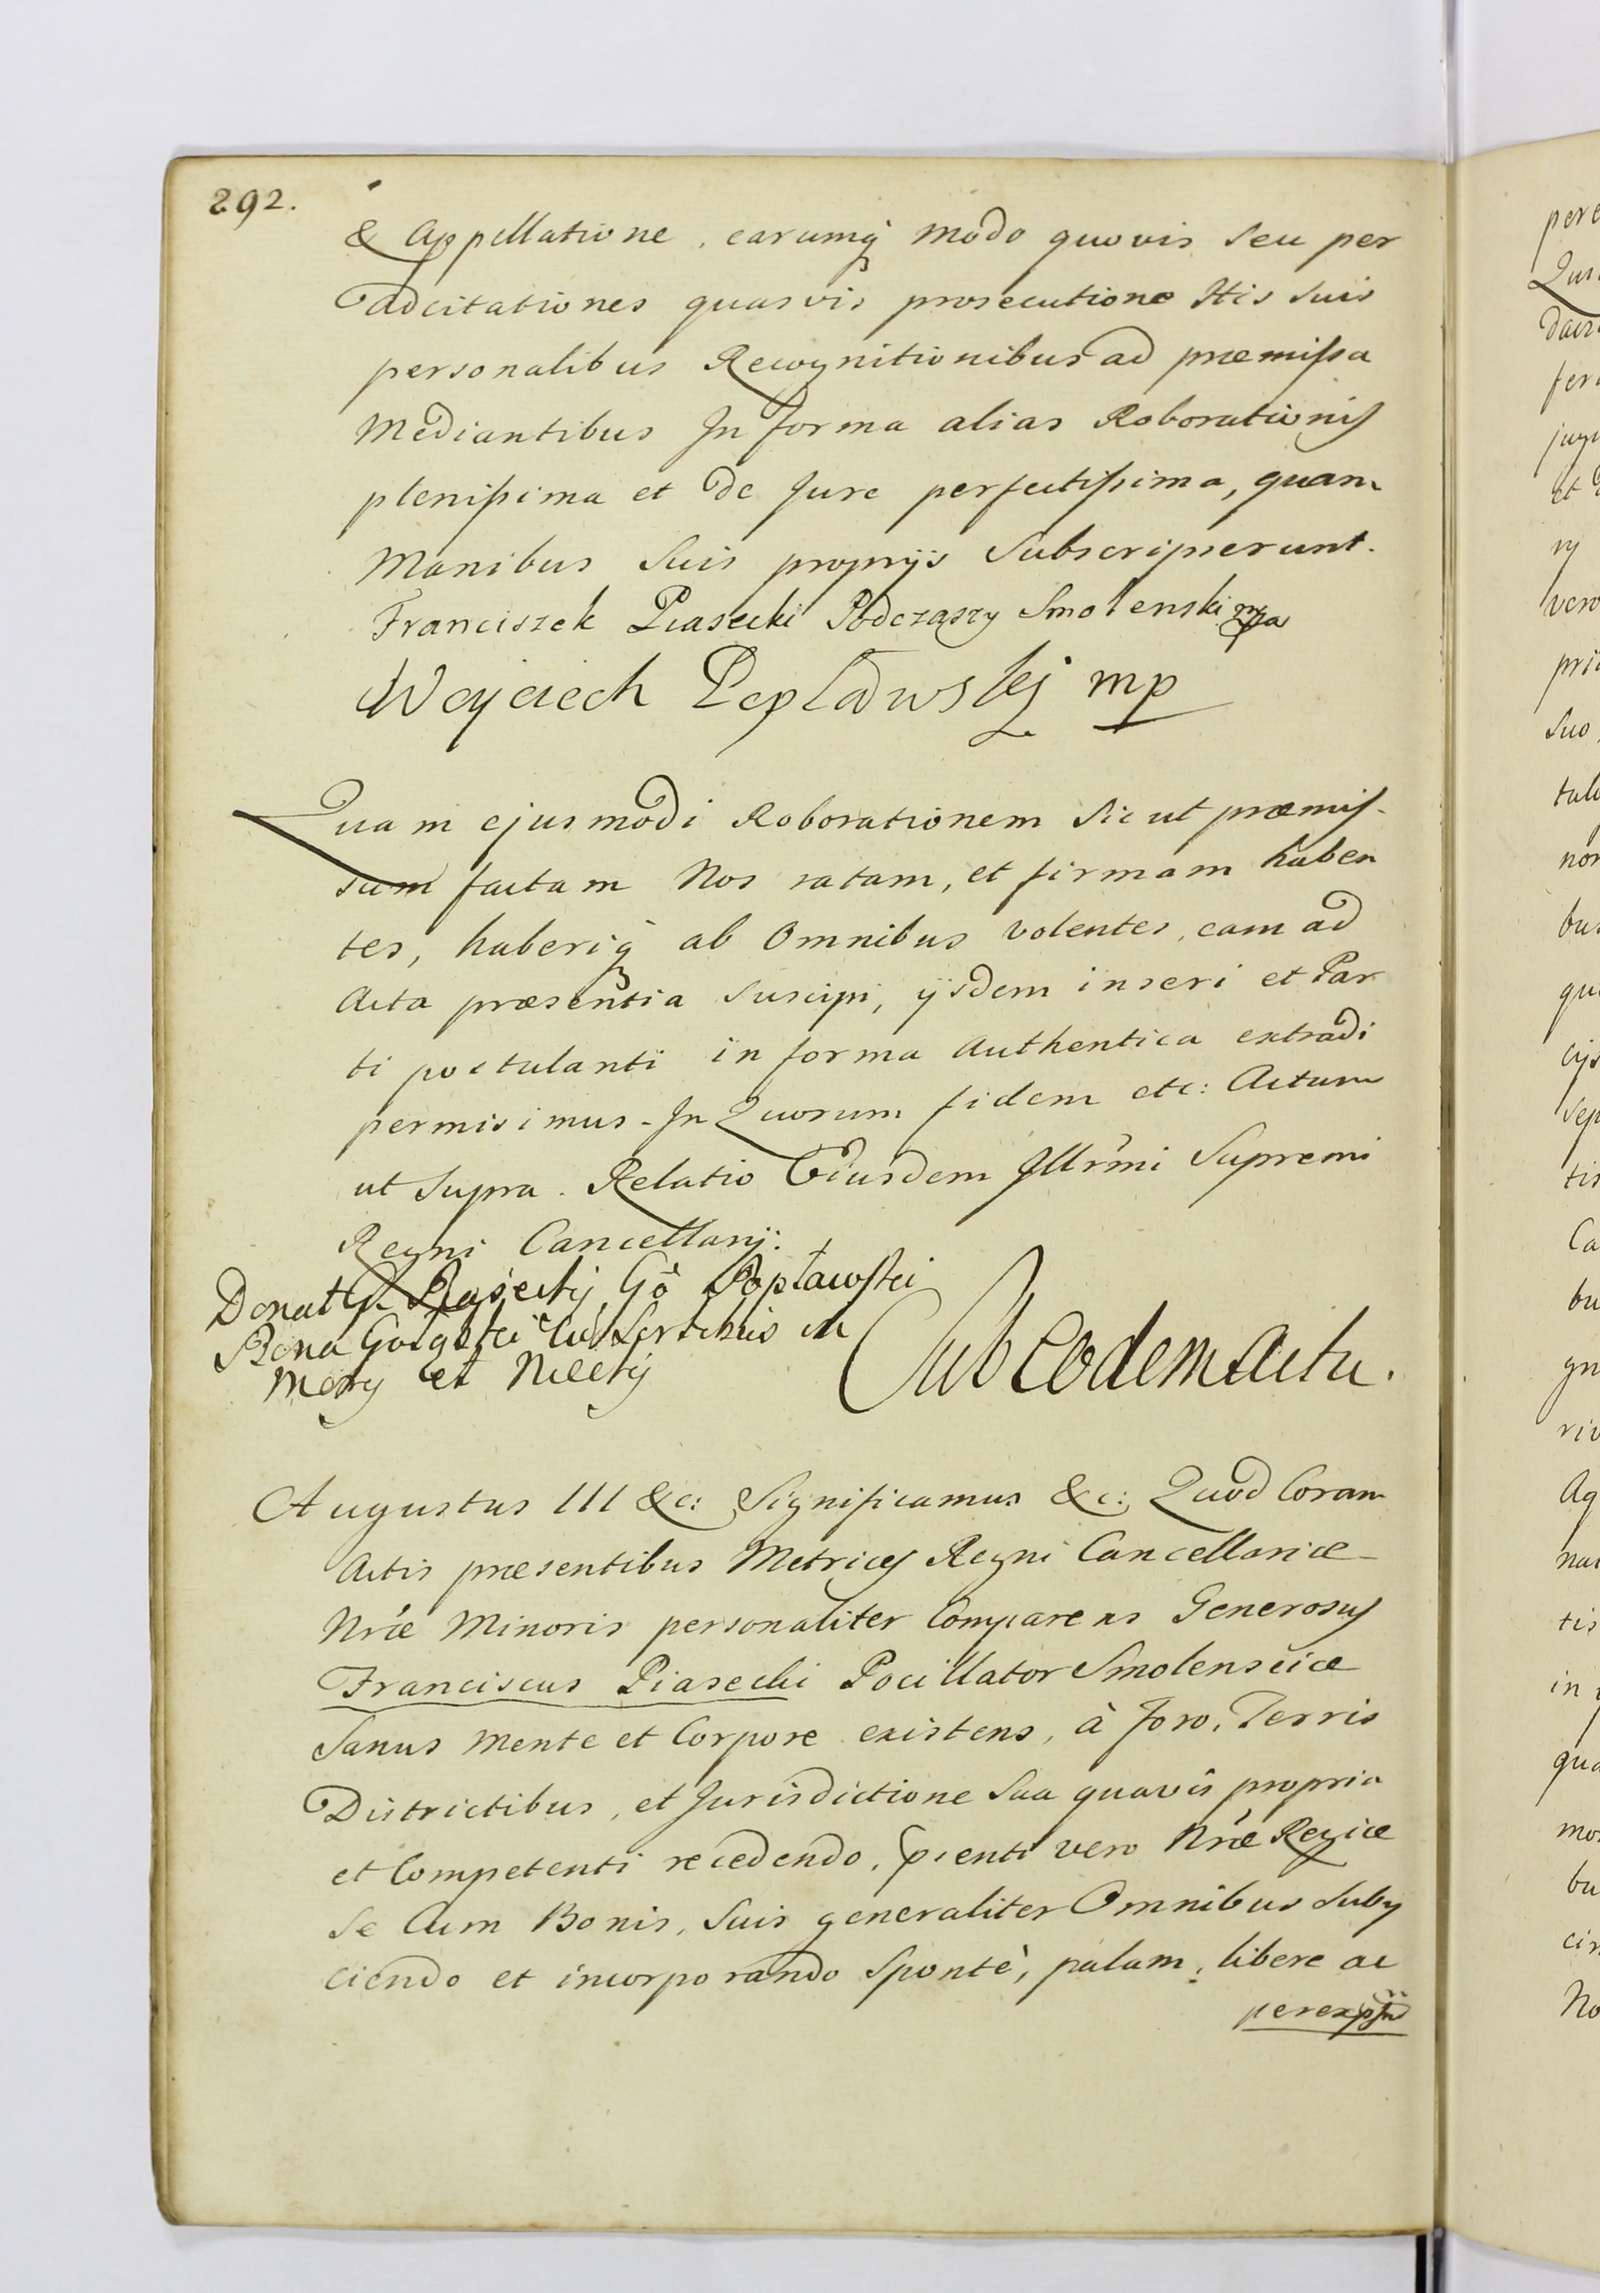 292.
& Appellatione, earumq modo quovis seu per
adcitationes quasvis prosecutione His suis
personalibus Recognitionibus ad præmissa
Mediantibus In forma alias Roborationis
plenissima et de Jure perfectissima, quam
Manibus suis proprijs subscripserunt.
Franciszek Piasecki Podczaszy Smolenski mpa
Woyciech Peplawskj mp
Quam ejusmodi Roborationem sic ut præmis-
sum factam Nos ratam, et firmam haben
tes, haberiq ab Omnibus volentes, eam ad
Acta præsentia suscipi, ijsdem inseri et Par
ti postulanti in forma Authentica extradi
permisimus. In Quorum fidem etc: Actum
ut supra. Relatio Eiusdem Illrmi Supremi
Regni Cancellarij.
Donat G. Piasecki Gō Poplawski
Bona
Mery et
Sub Eodem Actu.
Augustus III &c: Significamus &c: Quod Coram
Actis præsentibus Metrices Regni Cancellariæ
Nræ Minoris personaliter Comparens Generosus
Franciscus Piasecki Pocillator Smolensciæ
Sanus mente et Corpore existens, à foro, Terris
Districtibus, et Jurisdictione sua quavis propria
et Competenti recedendo, pienti vero Nræ Regiæ
se Cum Bonis, suis generaliter Omnibus suby
ciendo et incorporando sponte, palam, libere ac
pere
Qu